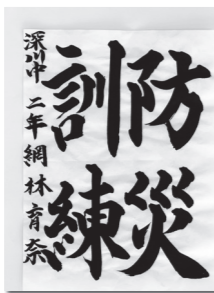 防災
訓練
深川中 二年 網林育奈